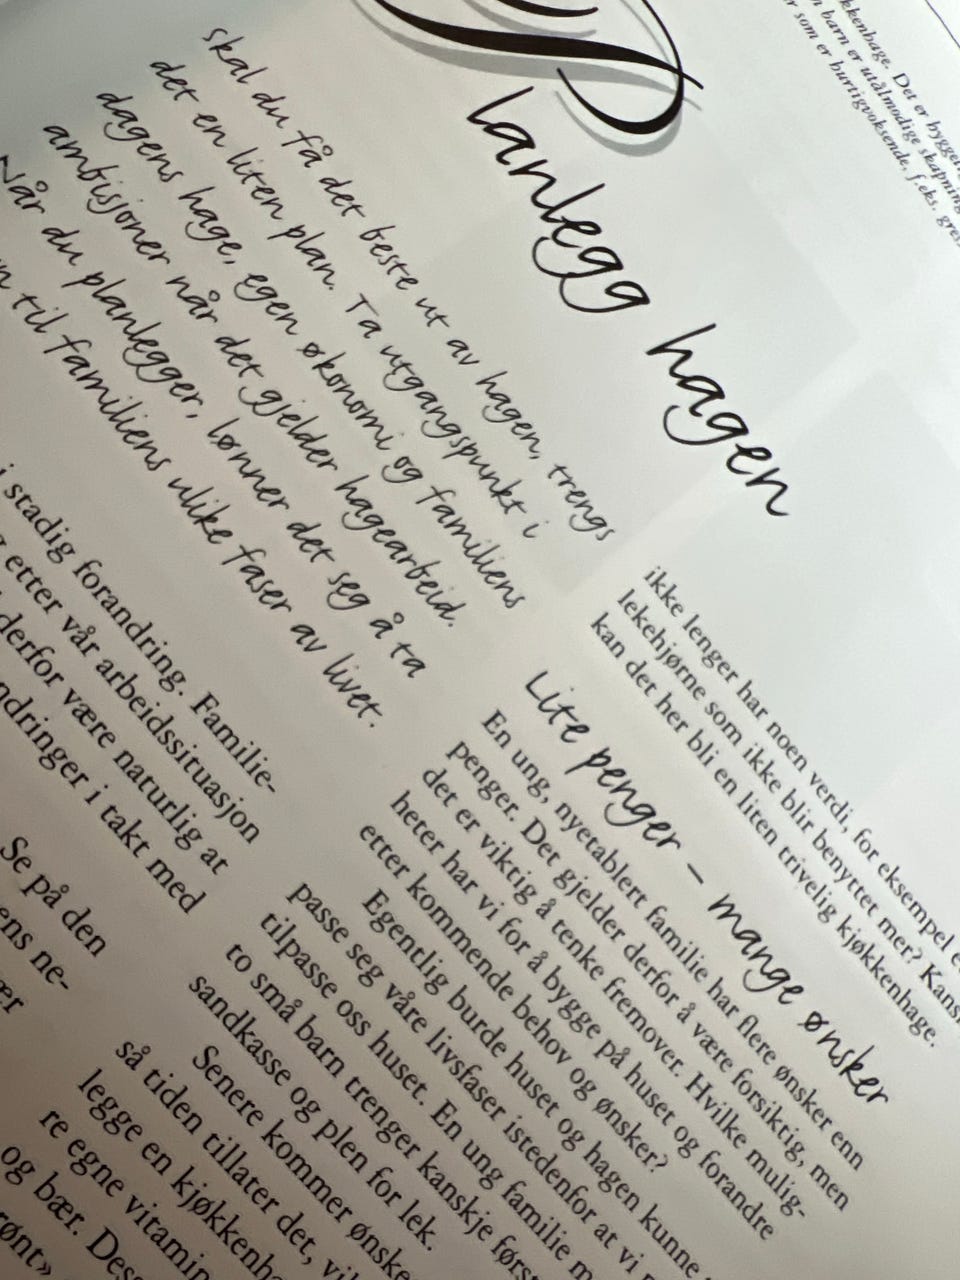 Planlegg hagen
skal du få det beste ut av hagen, trengs
det en liten plan. Ta utgangspunkt i
dagens hage, egen økonomi og familiens
ambisjoner når det gjelder hagearbeid.
Når du planlegger, lønner det seg å ta
til familiens ulike faser av livet.
i stadig forandring. Familie-
etter vår arbeidssituasjon
derfor være naturlig at
ndringer i takt med
Se på den
ens ne-
kkenhage. Det er
barn er utålmodige
som er hurtigvoksende, f.eks.
ikke lenger har noen verdi, for eksempel
lekehjørne som ikke blir benyttet mer?
kan det her bli en liten trivelig kjøkkenhage.
Lite penger – mange ønsker
En ung, nyetablert familie har flere ønsker enn
penger. Det gjelder derfor å være forsiktig, men
det er viktig å tenke fremover. Hvilke mulig-
heter har vi for å bygge på huset og forandre
etter kommende behov og ønsker?
Egentlig burde huset og hagen kunne
passe seg våre livsfaser istedenfor at vi
tilpasse oss huset. En ung familie
to små barn trenger kanskje
sandkasse og plen for lek.
Senere kommer
så tiden tillater det,
legge en
re egne
og bær.